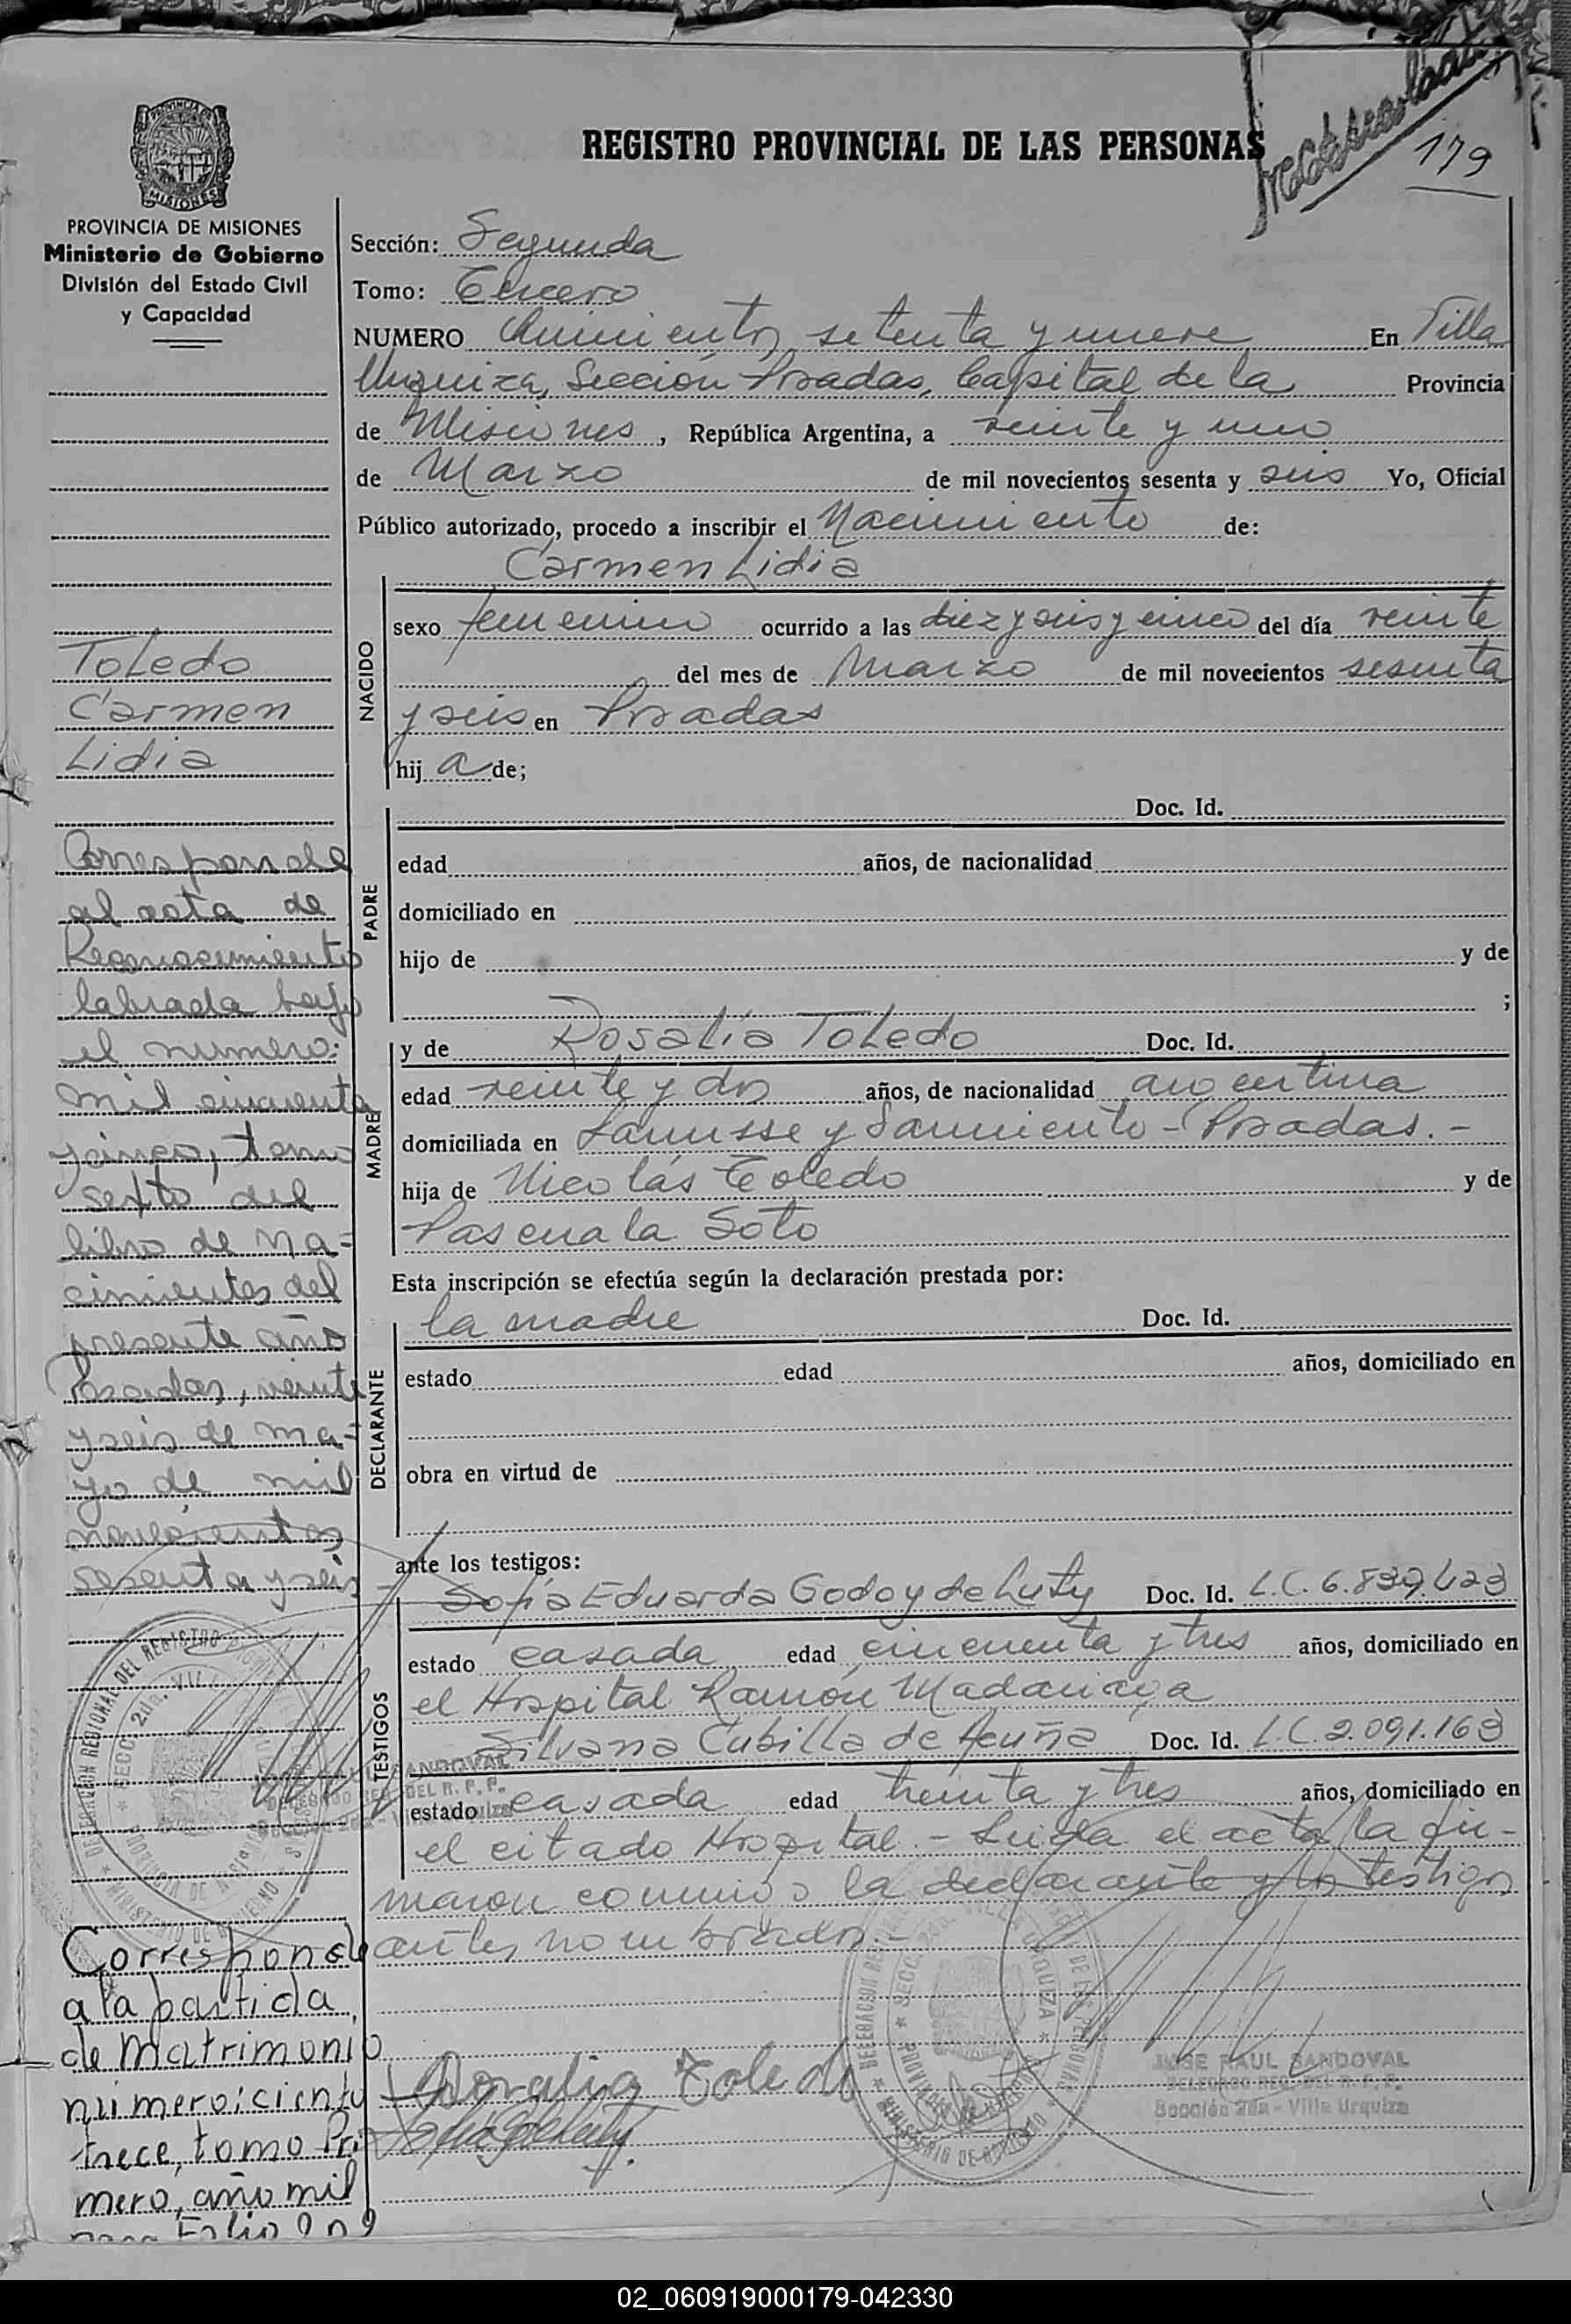 REGISTRO PROVINCIAL DE LAS PERSONAS
179
PROVINCIA DE MISIONES
MISIONES
PROVINCIA DE MISIONES
Ministerio de Gobierno
División del Estado Civil
y Capacidad
Sección: Segunda
Tomo: Tercero
NUMERO Quinientos setenta y nueve En Villa
Urquiza, Sección Posadas, Capital de la Provincia
de Misiones, República Argentina, a veinte y uno
de Marzo de mil novecientos sesenta y seis Yo, Oficial
Público autorizado, procedo a inscribir el Nacimiento de:
Carmen Lidia
NACIDO
sexo femenino ocurrido a las diez y seis y cinco del día veinte
del mes de Marzo de mil novecientos sesenta
y seis en Posadas
hij a de;
Toledo
Carmen
Lidia
PADRE
Doc. Id.
edad años, de nacionalidad
domiciliado en
hijo de y de
;
MADRE
y de Rosalía Toledo Doc. Id.
edad veinte y dos años, de nacionalidad argentina
domiciliada en Lanusse y Sarmiento - Posadas. -
hija de Nicolás Toledo y de
Pascuala Soto
Esta inscripción se efectúa según la declaración prestada por:
DECLARANTE
la madre Doc. Id.
estado edad años, domiciliado en
obra en virtud de
ante los testigos:
TESTIGOS
Sofía Eduarda Godoy de Luty Doc. Id. L.C. 6.839.423
estado casada edad cincuenta y tres años, domiciliado en
el Hospital Ramón Madariaga
Silvana Cubilla de Acuña Doc. Id. L.C. 2.091.163
estado casada edad treinta y tres años, domiciliado en
el citado Hospital. - Leida el acta la fir-
maron conmigo la declarante y los testigos
antes nombrados. -
Rosalia Toledo
JOSE RAUL SANDOVAL
DELEGADO REG. DEL R. P. P.
Sección 2da - Villa Urquiza
Corresponde
al acta de
Reconocimiento
labrada bajo
el numero:
mil cincuenta
y cinco, tomo
sexto del
libro de na-
cimientos del
presente año
Posadas, veinte
y seis de ma-
yo de mil
novecientos
sesenta y seis
SANDOVAL
DELEGADO REG. DEL R. P. P.
Sección 2da - Villa Urquiza
Corresponde
a la partida
de Matrimonio
numero: ciento
trece, tomo Pri
mero, año mil
Folio
02_060919000179-042330